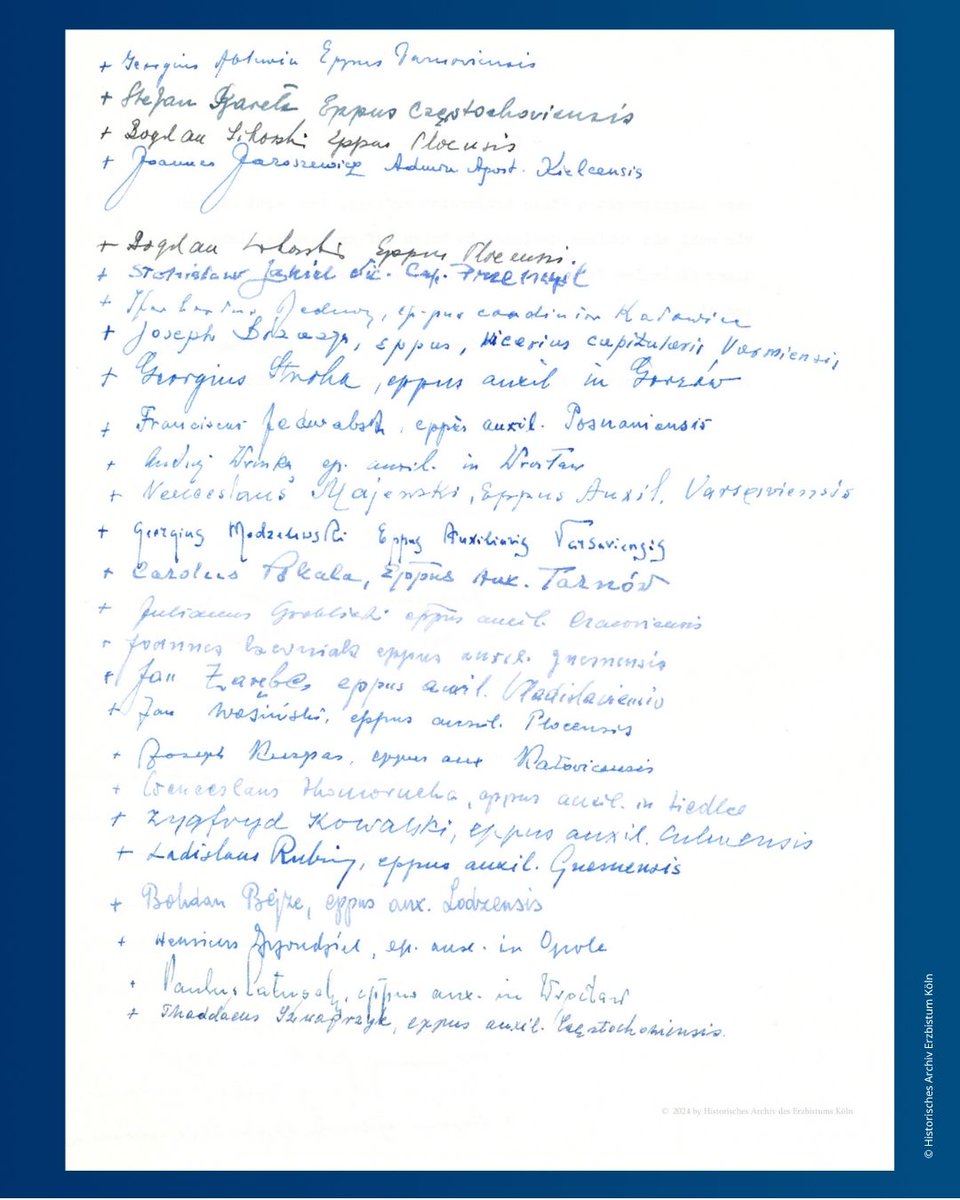 + Georgius Ablewicz Eppus Tarnoviensis
+ Stefan Bareła Eppus Częstochoviensis
+ Bogdan Sikorski Eppus Plocensis
+ Joannes Jaroszewicz Admin Apost. Kielcensis
+ Bogdan Sikorski Eppus Plocensis.
+ Stanisław Jakiel Vic. Cap. Przemyśl
+ eppus coadiutor Katowice
+ Joseph Drzazga, eppus, vicarius capitularis Varmiensis,
+ Georgius Stroba, eppus auxil in Gorzów
+ Franciscus Jedwabski, eppus auxil. Posnaniensis
+ Andrzej Wronka ep. auxil. in Wrocław
+ Venceslaus Majewski, Eppus Auxil. Varsaviensis
+ Georgius Modzelewski Eppus Auxiliaris Varsaviensis
+ Carolus Pękala, Eppus Aux. Tarnów
+ Julianus Groblicki eppus auxil. Cracoviensis
+ Joannes Czerniak eppus auxil. Gnesnensis
+ Jan Zaręba eppus auxil. Vladislaviensis
+ Jan Wosiński, eppus auxil. Plocensis
+ Joseph Kurpas, eppus aux Katovicensis
+ Wenceslaus Skomorucha, eppus auxil. in Siedlce
+ Zygfryd Kowalski, eppus auxil. Culmensis
+ Ladislaus Rubin, eppus auxil. Gnesnensis
+ Bohdan Bejze, eppus aux. Lodzensis
+ Henricus Grzondziel, ep. aux. in Opole
+ Paulus Latusek, eppus aux. in Wrocław
+ Thaddaeus Szwagrzyk, eppus auxil. Częstochoviensis.
© 2024 by Historisches Archiv des Erzbistums Köln
© Historisches Archiv Erzbistum Köln